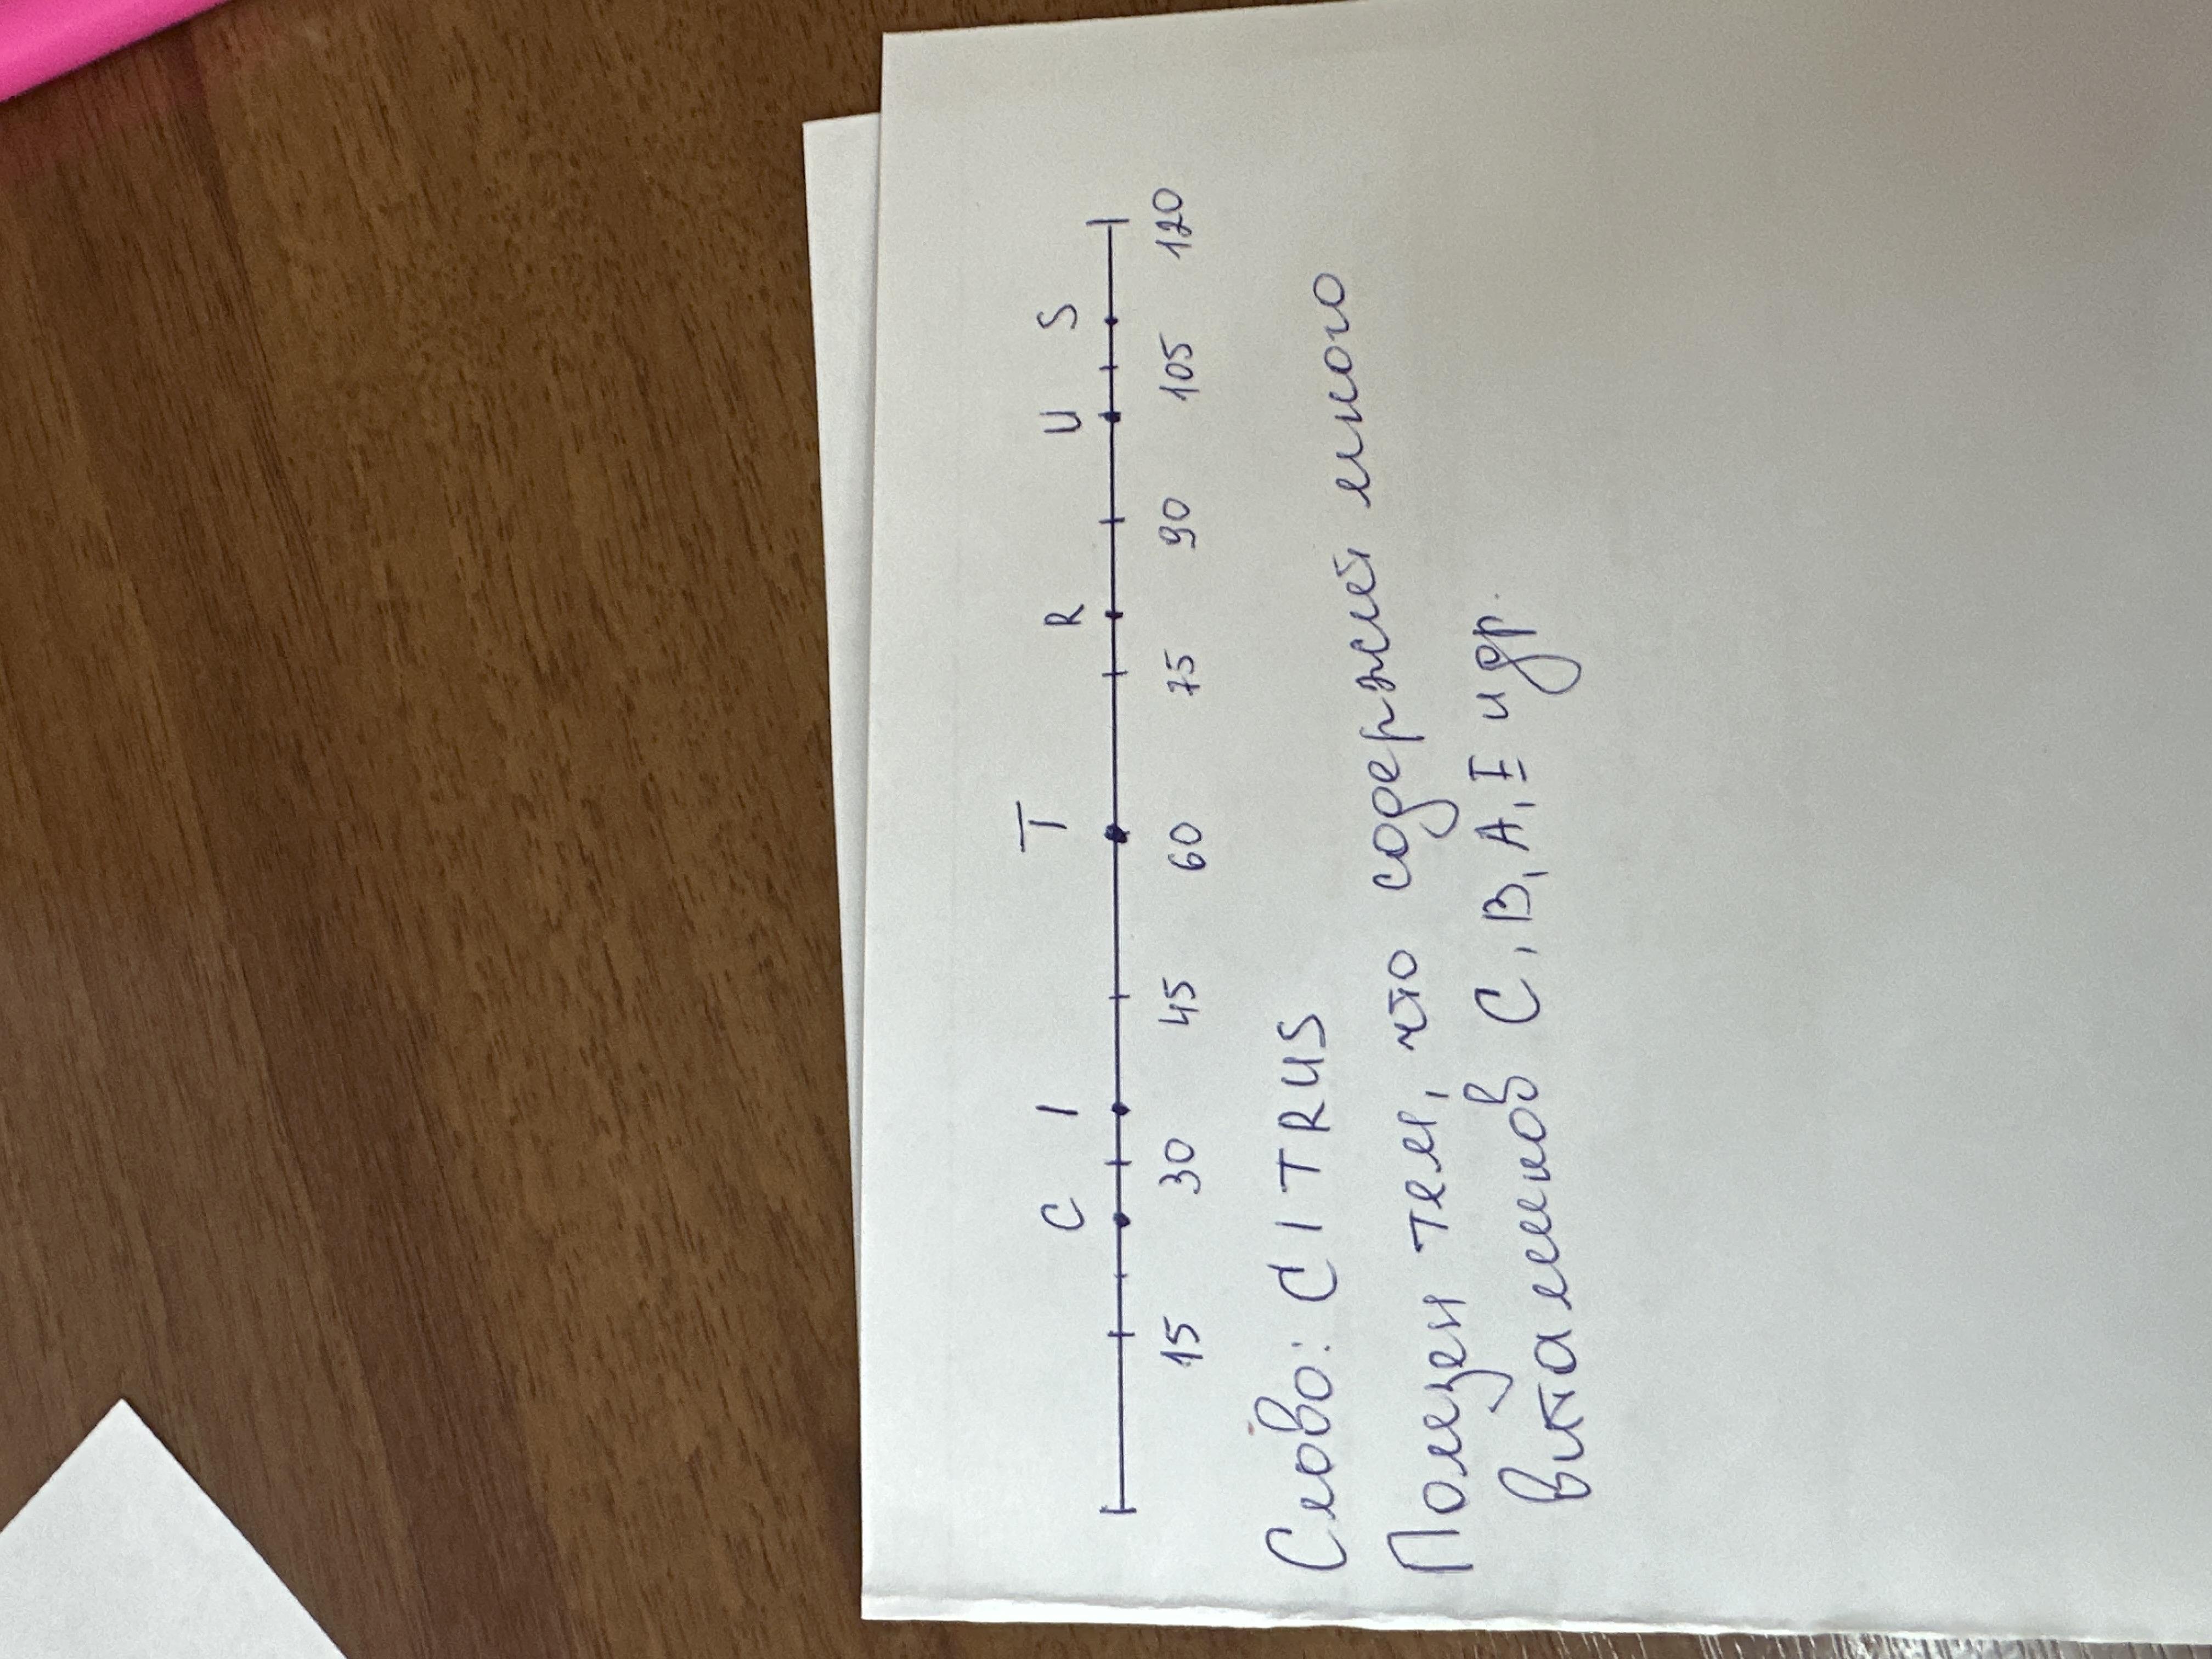 C I T R U S
15 30 45 60 75 90 105 120
Слово: CITRUS
Полезен тем, что содержит много
витаминов C, B, A, I и др.